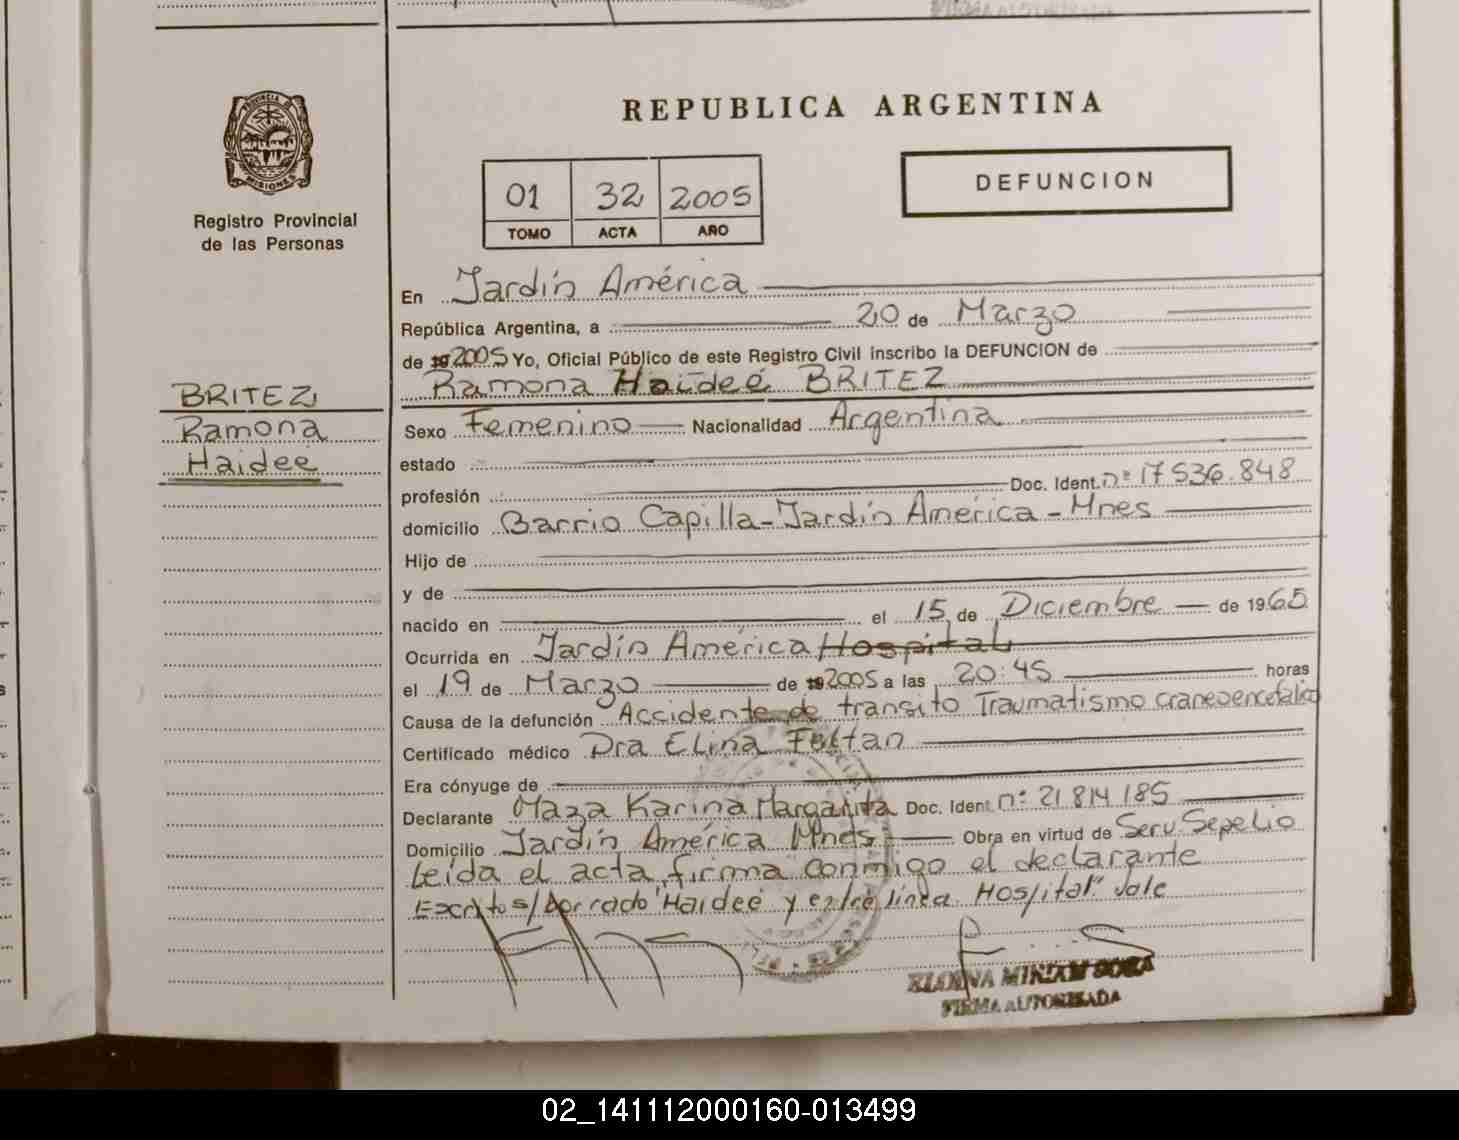 REPUBLICA ARGENTINA
PROVINCIA DE
MISIONES
Registro Provincial
de las Personas
01 32 2005
TOMO ACTA AÑO
DEFUNCION
En Jardín América
República Argentina, a 20 de Marzo
de 2005 Yo, Oficial Público de este Registro Civil inscribo la DEFUNCION de
Ramona Haideé BRITEZ
BRITEZ
Ramona
Haidee
Sexo Femenino Nacionalidad Argentina
estado
profesión Doc. Ident. nº 17.536.848
domicilio Barrio Capilla - Jardín América - Mnes
Hijo de
y de
nacido en el 15 de Diciembre de 1965
Ocurrida en Jardín América Hospital
el 19 de Marzo de 2005 a las 20:45 horas
Causa de la defunción Accidente de transito Traumatismo craneoencefalico
Certificado médico Dra Elina
Era cónyuge de
Declarante Maza Karina Margarita Doc. Ident. nº 21.814.185
Domicilio Jardín América Mnes Obra en virtud de Serv. Sepelio
Leída el acta, firma conmigo el declarante
Escrito s/borrado "Haideé y entre línea Hospital" Vale
MIRIAM SOSA
FIRMA AUTORIZADA
02_141112000160-013499